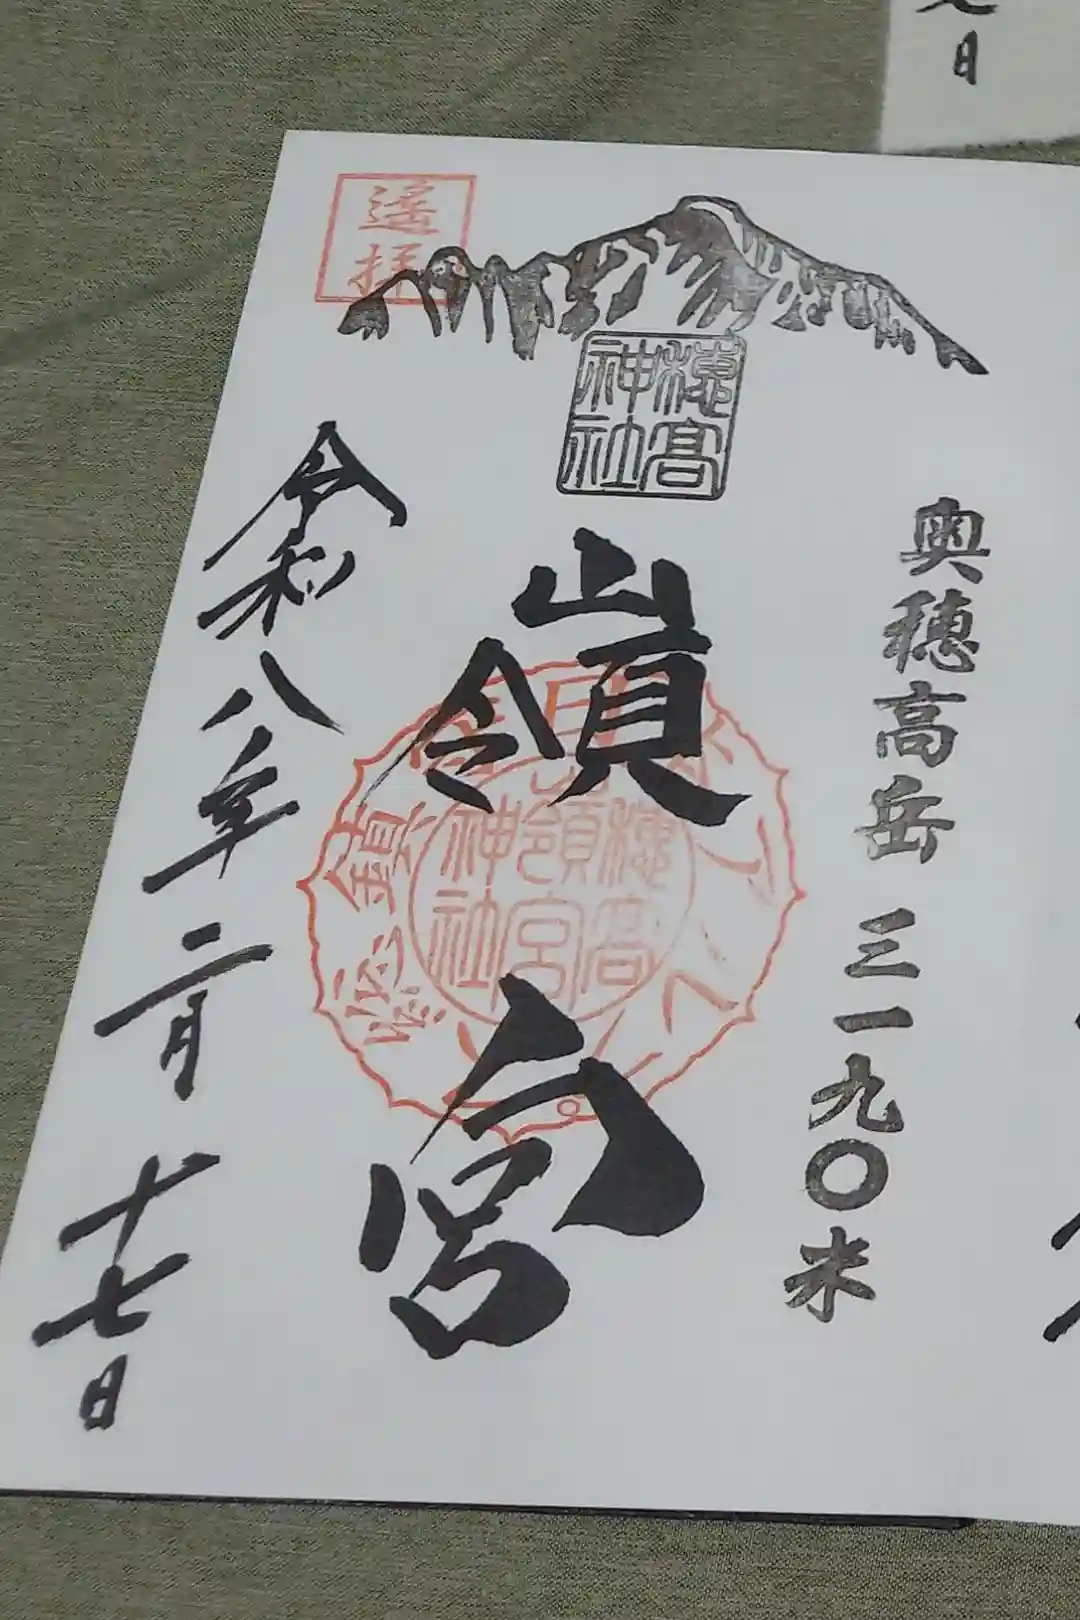 七日
奥穂高岳 三一九〇米
遥拝
穂高
神社
嶺宮
穂高
嶺宮
神社
日本
総鎮
令和八年二月十七日